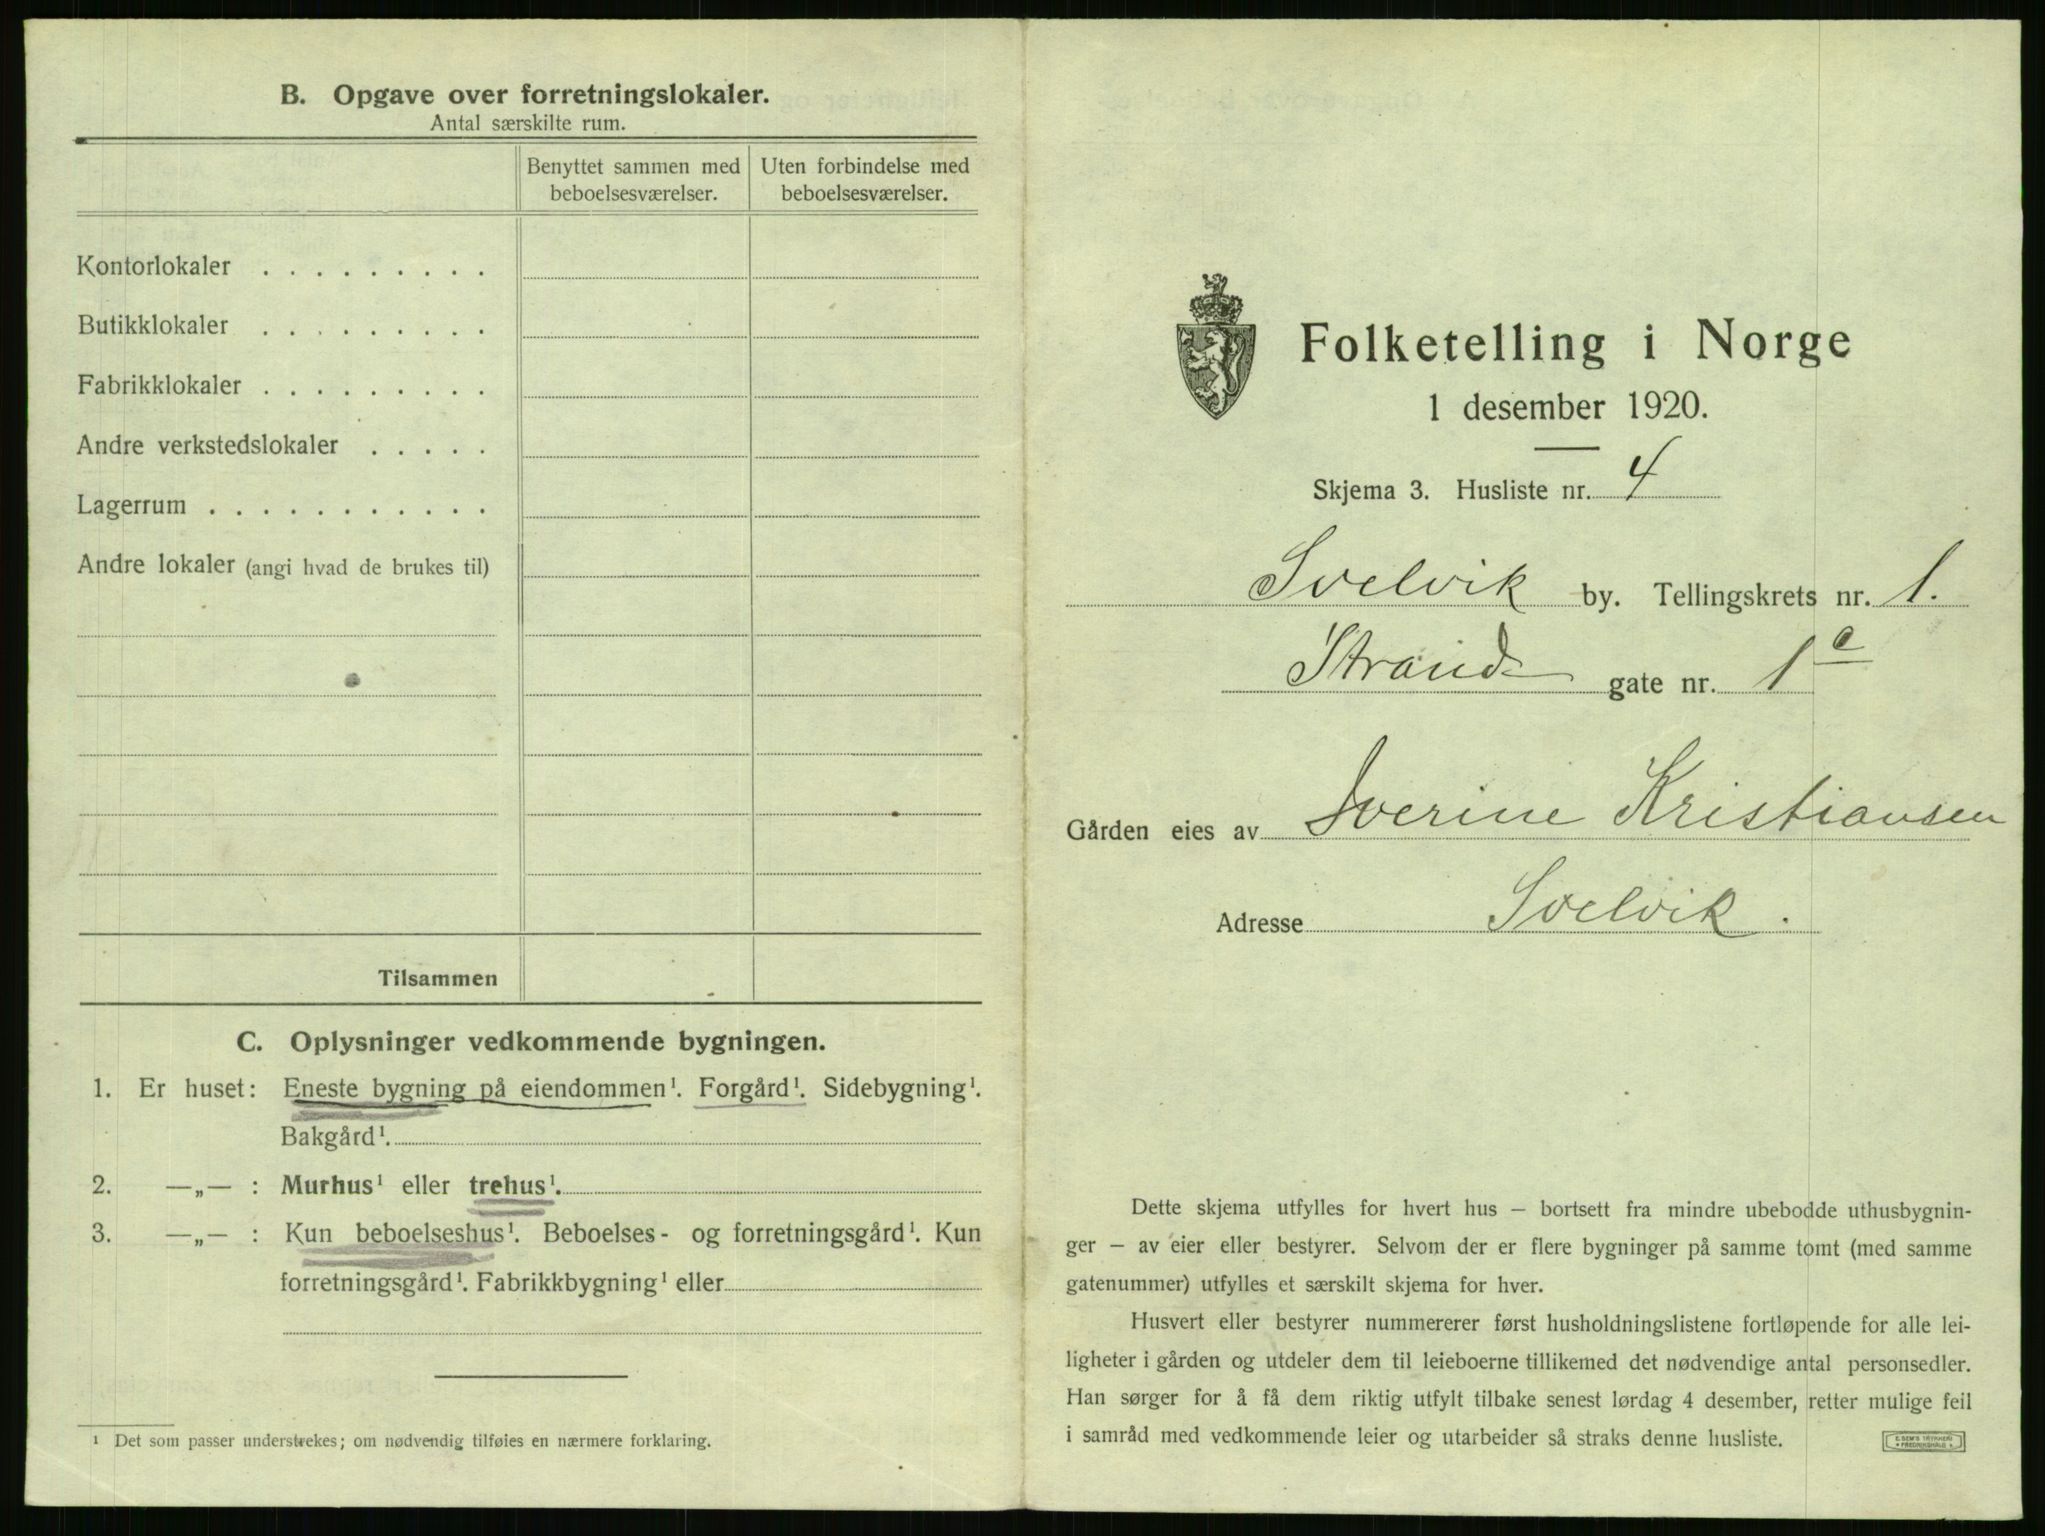 B. Opgave over forretningslokaler.
Antal særskilte rum.
Benyttet sammen med beboelsesværelser.
Uten forbindelse med beboelsesværelser.
Kontorlokaler . . . . . . . . .
Butikklokaler . . . . . . . . .
Fabrikklokaler . . . . . . . . .
Andre verkstedslokaler . . . . .
Lagerrum . . . . . . . . . . .
Andre lokaler (angi hvad de brukes til)
Tilsammen
C. Oplysninger vedkommende bygningen.
1. Er huset: Eneste bygning på eiendommen¹. Forgård¹. Sidebygning¹.
Bakgård¹.
2. —„— : Murhus¹ eller trehus¹.
3. —„— : Kun beboelseshus¹. Beboelses- og forretningsgård¹. Kun
forretningsgård¹. Fabrikkbygning¹ eller
¹ Det som passer understrekes; om nødvendig tilføies en nærmere forklaring.
Folketelling i Norge
1 desember 1920.
Skjema 3. Husliste nr. 4
Svelvik by. Tellingskrets nr. 1.
Strand- gate nr. 1c
Gården eies av Iverine Kristiansen
Adresse Svelvik.
Dette skjema utfylles for hvert hus — bortsett fra mindre ubebodde uthusbygnin-
ger — av eier eller bestyrer. Selvom der er flere bygninger på samme tomt (med samme
gatenummer) utfylles et særskilt skjema for hver.
Husvert eller bestyrer nummererer først husholdningslistene fortløpende for alle lei-
ligheter i gården og utdeler dem til leieboerne tillikemed det nødvendige antal personsedler.
Han sørger for å få dem riktig utfylt tilbake senest lørdag 4 desember, retter mulige feil
i samråd med vedkommende leier og utarbeider så straks denne husliste.
E. SEM'S TRYKKERI
FREDRIKSHALD